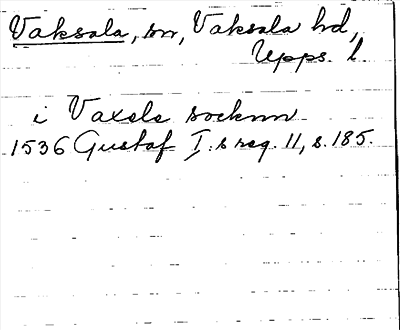 Vaksala, sn, Vaksala hd,
Upps. l.
i Vaxsle socknn
1536 Gustaf I:s reg. 11, s. 185.